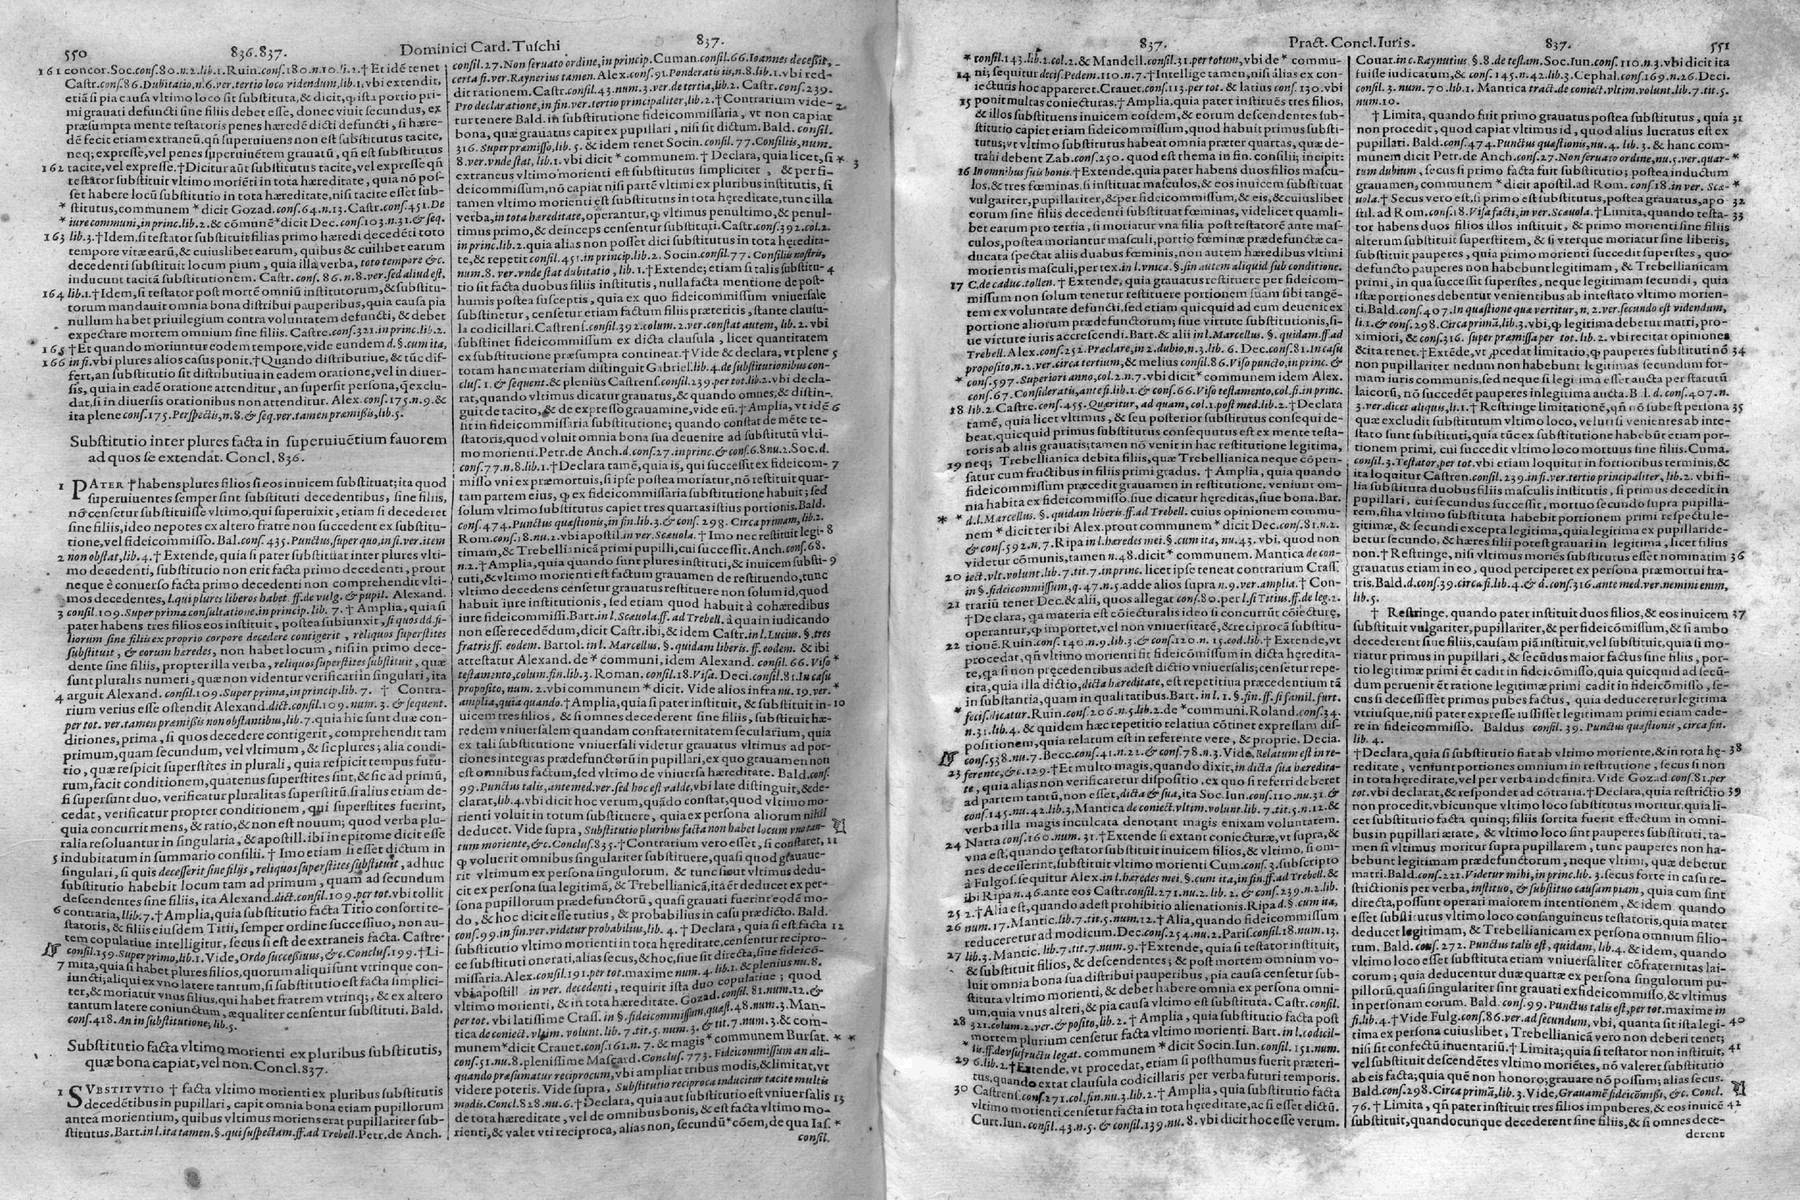 550 836.837. Dominici Card. Tuschi 837.
161 concor. Soc. cons. 80. n. 2. lib. 1. Ruin. cons. 180. n. 10. li. 2. † Et idē tenet
Castr. cons. 86. Dubitatio, n. 6. ver. tertio loco videndum, lib. 1. vbi extendit,
etiā si pia causa vltimo loco sit substituta, & dicit, q ista portio pri-
mi grauati defuncti sine filiis debet esse, donec viuit secundus, ex
præsumpta mente testatoris penes hæredē dicti defuncti, si hære-
dē fecit etiam extraneū. qñ superuiuens non est substitutus tacite,
neq; expresse, vel penes superuiuētem grauatū, qñ est substitutus
162 tacite, vel expresse. † Dicitur aūt substitutus tacite, vel expresse qñ
testator substituit vltimo moriēti in tota hæreditate, quia nō pos-
set habere locū substitutio in tota hæreditate, nisi tacite esset sub-
* stitutus, communem * dicit Gozad. cons. 64. n. 13. Castr. cons. 451. De
* iure communi, in princ. lib. 2. & cōmunē * dicit Dec. cons. 103. n. 31. & seq.
163 lib. 3. † Idem, si testator substituit filias primo hæredi decedēti toto
tempore vitæ earū, & cuiuslibet earum, quibus & cuilibet earum
decedenti substituit locum pium, quia illa verba, toto tempore &c.
inducunt tacitā substitutionem. Castr. cons. 86. n. 8. ver. sed aliud est.
164 lib. 1. † Idem, si testator post mortē omniū institutorum, & substitu-
torum mandauit omnia bona distribui pauperibus, quia causa pia
nullum habet priuilegium contra voluntatem defuncti, & debet
expectare mortem omnium sine filiis. Castre. cons. 321. in princ. lib. 2.
165 † Et quando moriuntur eodem tempore, vide eundem d. §. cum ita,
166 in fi. vbi plures alios casus ponit. † Quando distributiue, & tūc dif-
fert, an substitutio sit distributiua in eadem oratione, vel in diuer-
sis, quia in eadē oratione attenditur, an supersit persona, quæ exclu-
dat, si in diuersis orationibus non attenditur. Alex. cons. 175. n. 9. &
ita plene cons. 175. Perspectis, n. 8. & seq. ver. tamen præmissis, lib. 5.
Substitutio inter plures facta in superuiuētium fauorem
ad quos se extendat. Concl. 836.
1 PATER † habens plures filios si eos inuicem substituat; ita quod
superuiuentes semper sint substituti decedentibus, sine filiis,
nō censetur substituisse vltimo, qui superuixit, etiam si decederet
sine filiis, ideo nepotes ex altero fratre non succedent ex substitu-
tione, vel fideicommisso. Bal. cons. 435. Punctus, super quo, in fi. ver. item
2 non obstat, lib. 4. † Extende, quia si pater substituat inter plures vlti-
mo decedenti, substitutio non erit facta primo decedenti, prout
neque è conuerso facta primo decedenti non comprehendit vlti-
mos decedentes, l. qui plures liberos habet. ff. de vulg. & pupil. Alexand.
3 consil. 109. Super prima consultatione. in princip. lib. 7. † Amplia, quia si
pater habens tres filios eos instituit, postea subiunxit, si quos dd. fi-
liorum sine filiis ex proprio corpore decedere contigerit, reliquos superstites
substituit, & eorum hæredes, non habet locum, nisi in primo dece-
dente sine filiis, propter illa verba, reliquos superstites substituit, quæ
sunt pluralis numeri, quæ non videntur verificari in singulari, ita
4 arguit Alexand. consil. 109. Super prima, in princip. lib. 7. † Contra-
rium verius esse ostendit Alexand. dict. consil. 109. num. 3. & sequent.
per tot. ver. tamen præmissis non obstantibus, lib. 7. quia hic sunt duæ con-
ditiones, prima, si quos decedere contigerit, comprehendit tam
primum, quam secundum, vel vltimum, & sic plures; alia condi-
tio, quæ respicit superstites in plurali, quia respicit tempus futu-
rum, facit conditionem, quatenus superstites sunt, & sic ad primū,
si supersunt duo, verificatur pluralitas superstitū. si alius etiam de-
cedat, verificatur propter conditionem, qui superstites fuerint,
quia concurrit mens, & ratio, & non est nouum; quod verba plu-
ralia resoluantur in singularia, & apostill. ibi in epitome dicit esse
5 indubitatum in summario consilii. † Imo etiam si esset dictum in
singulari, si quis decesserit sine filijs, reliquos superstites substituit, adhuc
substitutio habebit locum tam ad primum, quam ad secundum
descendentes sine filiis, ita Alexand. dict. consil. 109. per tot. vbi tollit
6 contraria, lib. 7. † Amplia, quia substitutio facta Titio consorti te-
statoris, & filiis eiusdem Titii, semper ordine successiuo, non au-
tem copulatiue intelligitur, secus si est de extraneis facta. Castre.
consil. 139. Super primo, lib. 1. Vide, Ordo successiuus, &c. Conclus. 199. † Li-
7 mita, quia si habet plures filios, quorum aliqui sunt vtrinque con-
iuncti; aliqui ex vno latere tantum, si substitutio est facta simplici-
ter, & moriatur vnus filius, qui habet fratrem vtrinq; & ex altero
tantum latere coniunctum, æqualiter censetur substituti. Bald.
cons. 418. An in substitutione, lib. 5.
Substitutio facta vltimo morienti ex pluribus substitutis,
quæ bona capiat, vel non. Concl. 837.
1 SVBSTITVTIO † facta vltimo morienti ex pluribus substitutis
decedētibus in pupillari, capit omnia bona etiam pupillorum
antea morientium, quibus vltimus moriens erat pupillariter sub-
stitutus. Bart. in l. ita tamen. §. qui suspectam. ff. ad Trebell. Petr. de Anch.
consil. 27. Non seruato ordine, in princip. Cuman. consil. 66. Ioannes decessit,
certa fi. ver. Raynerius tamen. Alex. cons. 91. Ponderatis iis, n. 8. lib. 1. vbi red-
dit rationem. Castr. consil. 43. num. 3. ver. de tertia, lib. 2. Castr. cons. 239.
Pro declaratione, in fin. ver. tertio principaliter, lib. 2. † Contrarium vide- 2
tur tenere Bald. in substitutione fideicommissaria, vt non capiat
bona, quæ grauatus capit ex pupillari, nisi sit dictum. Bald. consil.
316. Super præmisso, lib. 5. & idem tenet Socin. consil. 77. Consiliis, num.
8. ver. vnde stat, lib. 1. vbi dicit * communem. † Declara, quia licet, si * 3
extraneus vltimo morienti est substitutus simpliciter, & per fi-
deicommissum, nō capiat nisi partē vltimi ex pluribus institutis, si
tamen vltimo morienti est substitutus in tota hęreditate, tunc illa
verba, in tota hæreditate, operantur, q vltimus penultimo, & penul-
timus primo, & deinceps censentur substituti. Castr. cons. 392. col. 2.
in princ. lib. 2. quia alias non posset dici substitutus in tota heredita-
te, & repetit consil. 451. in princip. lib. 2. Socin. consil. 77. Consiliis nostris,
num. 8. ver. vnde stat dubitatio, lib. 1. † Extende; etiam si talis substitu- 4
tio sit facta duobus filiis institutis, nulla facta mentione de post-
humis postea susceptis, quia ex quo fideicommissum vniuersale
substinetur, censetur etiam factum filiis præteritis, stante clausu-
la codicillari. Castrens. consil. 392. colum. 2. ver. constat autem, lib. 2. vbi
substinet fideicommissum ex dicta clausula, licet quantitatem
ex substitutione præsumpta contineat. † Vide & declara, vt plene 5
totam hanc materiam distinguit Gabriel. lib. 4. de substitutionibus con-
clus. 1. & sequent. & plenius Castrens. consil. 239. per tot. lib. 2. vbi decla-
rat, quando vltimus dicatur grauatus, & quando omnes, & distin-
guit de tacito, & de expresso grauamine, vide eū. † Amplia, vt idē 6
sit in fideicommissaria substitutione; quando constat de mēte te-
statoris, quod voluit omnia bona sua deuenire ad substitutū vlti-
mo morienti. Petr. de Anch. d. cons. 27. in princ. & cons. 68. nu. 2. Soc. d.
cons. 77. n. 8. lib. 1. † Declara tamē, quia is, qui successit ex fideicom- 7
misso vni ex præmortuis, si ipse postea moriatur, nō restituit quar-
tam partem eius, q ex fideicommissaria substitutione habuit; sed
solum vltimo substitutus capiet tres quartas istius portionis. Bald.
cons. 474. Punctus quæstionis, in fin. lib. 3. & cons. 298. Circa primam, lib. 2.
Rom. cons. 18. nu. 2. vbi apostil. in ver. Scæuola. † Imo nec restituit legi- 8
timam, & Trebellianicā primi pupilli, cui successit. Anch. cons. 68.
n. 2. † Amplia, quia quando sunt plures instituti, & inuicem substi- 9
tuti, & vltimo morienti est factum grauamen de restituendo, tunc
vltimo decedens censetur grauatus restituere non solum id, quod
habuit iure institutionis, sed etiam quod habuit à cohæredibus
iure fideicommissi. Bart. in l. Scæuola. ff. ad Trebell. à qua in iudicando
non esse recedēdum, dicit Castr. ibi, & idem Castr. in l. Lucius. §. tres
fratris ff. eodem. Bartol. in l. Marcellus. §. quidam liberis. ff. eodem. & ibi
attestatur Alexand. de * communi, idem Alexand. consil. 66. Viso *
testamento, colum. fin. lib. 3. Roman. consil. 18. Visa. Deci. cons. 81. In casu
proposito, num. 2. vbi communem * dicit. Vide alios infra nu. 19. ver. *
amplia, quia quando. † Amplia, quia si pater instituit, & substituit in- 10
uicem tres filios, & si omnes decederent sine filiis, substituit hæ-
redem vniuersalem quandam confraternitatem secularium, quia
ex tali substitutione vniuersali videtur grauatus vltimus ad por-
tiones integras prædefunctorū in pupillari, ex quo grauamen non
est omnibus factum, sed vltimo de vniuersa hæreditate. Bald. cons.
99. Punctus talis, ante med. ver. sed hoc est valde, vbi late distinguit, & de-
clarat, lib. 4. vbi dicit hoc verum, quādo constat, quod vltimo mo-
rienti voluit in totum substituere, quia ex persona aliorum nihil
deducet. Vide supra, Substitutio pluribus facta non habet locum vno tan-
tum moriente, &c. Conclus. 835. † Contrarium vero esset, si constaret, 11
q voluerit omnibus singulariter substituere, quasi quod grauaue-
rit vltimum ex persona singulorum, & tunc sicut vltimus dedu-
cit ex persona sua legitimā, & Trebellianicā, ita ēt deducet ex per-
sona pupillorum prædefunctorū, quasi grauati fuerint eodē mo-
do, & hoc dicit esse tutius, & probabilius in casu prædicto. Bald.
cons. 99. in fin. ver. videtur probabilius, lib. 4. † Declara, quia si est facta 12
substitutio vltimo morienti in tota hęreditate, censentur recipro-
ce substituti onerati, alias secus, & hoc, siue sit directa, siue fideicō-
missaria. Alex. consil. 191. per tot. maxime num. 4. lib. 1. & plenius nu. 8.
vbi apostill in ver. decedenti, requirit ista duo copulatiue; quod
vltimo morienti, & in tota hæreditate. Gozad. consil. 81. num. 12. &
per tot. vbi latissime Crass. in §. fideicommissum, quæst. 48. num. 3. Man-
tica de coniect. vltim. volunt. lib. 7. tit. 5. num. 3. & tit. 7. num. 3. & com-
munem * dicit Crauet. cons. 161. n. 7. & magis * communem Bursat. * *
cons. 51. nu. 8. plenissime Mascard. Conclus. 773. Fideicommissum an ali-
quando præsumatur reciprocum, vbi ampliat tribus modis, & limitat, vt
videre poteris. Vide supra, Substitutio reciproca inducitur tacite multis
modis. Concl. 828. nu. 6. † Declara, quia aut substitutio est vniuersalis 13
de tota hæreditate, vel de omnibus bonis, & est facta vltimo mo-
rienti, & valet vti reciproca, alias non, secundū * cōem, de qua Ias. *
consil.
837. Pract. Concl. Iuris. 837. 551
* consil. 143. lib. 2. col. 2. & Mandell. consil. 31. per totum, vbi de * commu-
14 ni; sequitur decis. Pedem. 110. n. 7. † Intellige tamen, nisi alias ex con-
iecturis hoc appareret. Crauet. cons. 113. per tot. & latius cons. 130. vbi
15 ponit multas coniecturas. † Amplia, quia pater instituēs tres filios,
& illos substituens inuicem eosdem, & eorum descendentes sub-
stitutio capiet etiam fideicommissum, quod habuit primus substi-
tutus; vt vltimo substitutus habeat omnia præter quartas, quæ de-
trahi debent Zab. cons. 250. quod est thema in fin. consilii; incipit:
16 In omnibus suis bonis. † Extende, quia pater habens duos filios mascu-
los, & tres fœminas. si instituat masculos, & eos inuicem substituat
vulgariter, pupillariter, & per fideicommissum, & eis, & cuiuslibet
eorum sine filiis decedenti substituat fœminas, videlicet quamli-
bet earum pro tertia, si moriatur vna filia post testatorē ante mas-
culos, postea moriantur masculi, portio fœminæ prædefunctæ ca-
ducata spectat aliis duabus fœminis, non autem hæredibus vltimi
morientis masculi, per tex. in l. vnica. §. sin autem aliquid sub conditione.
17 C. de caduc. tollen. † Extende, quia grauatus restituere per fideicom-
missum non solum tenetur restituere portionem suam sibi tangē-
tem ex voluntate defuncti, sed etiam quicquid ad eum deuenit ex
portione aliorum prædefunctorum; siue virtute substitutionis, si-
ue virtute iuris accrescendi. Bart. & alii in l. Marcellus. §. quidam. ff. ad
Trebell. Alex. cons. 252. Præclare, in 2. dubio, n. 3. lib. 6. Dec. cons. 81. In casu
proposito, n. 2. ver. circa tertium, & melius cons. 86. Viso puncto, in princ. &
* cons. 597. Superiori anno, col. 2. n. 7. vbi dicit * communem idem Alex.
cons. 67. Consideratis, ante fi. lib. 1. & cons. 66. Viso testamento, col. fi. in princ.
18 lib. 2. Castre. cons. 455. Quæritur, ad quam, col. 1. post med. lib. 2. † Declara
tamē, quia licet vltimus, & seu posterior substitutus consequi de-
beat. quicquid primus substitutus consequutus est ex mente testa-
toris ab aliis grauatis; tamen nō venit in hac restitutione legitima,
19 neq; Trebellianica debita filiis, quæ Trebellianica neque cōpen-
satur cum fructibus in filiis primi gradus. † Amplia, quia quando
fideicommissum præcedit grauamen in restitutione, veniunt om-
nia habita ex fideicommisso, siue dicatur hęreditas, siue bona. Bar.
* * d. l. Marcellus. §. quidam liberis. ff. ad Trebell. cuius opinionem commu-
nem * dicit ter ibi Alex. prout communem * dicit Dec. cons. 81. n. 2.
& cons. 592. n. 7. Ripa in l. hæredes mei. §. cum ita, nu. 43. vbi. quod non
videtur cōmunis, tamen n. 48. dicit * communem. Mantica de con-
iect. vlt. volunt. lib. 7. tit. 7. in princ. licet ipse teneat contrarium Crass.
20 in §. fideicommissum, q. 47. n. 5. adde alios supra n. 9. ver. amplia. † Con-
trariū tenet Dec. & alii, quos allegat cons. 80. per l. si Titius. ff. de leg. 2.
21 † Declara, qa materia est cōiecturalis ideo si concurrūt cōiecturę,
operantur, q importet, vel non vniuersitatē, & reciprocā substitu-
22 tionē. Ruin. cons. 140. n. 9. lib. 3. & cons. 120. n. 15. eod. lib. † Extende, vt
procedat, qñ vltimo morienti sit fideicōmissum in dicta hęredita-
te, qa si non pręcedentibus adest dictio vniuersalis; censetur repe-
tita, quia illa dictio, dicta hæreditate, est repetitiua prædictorum tā
in substantia, quam in qualitatibus. Bart. in l. 1. §. fin. ff. si famil. furt.
* feciss. dicatur. Ruin. cons. 206. n. 5. lib. 2. de * communi. Roland. cons. 34.
n. 31. lib. 4. & quidem hæc repetitio relatiua cōtinet expressam dis-
positionem, quia relatum est in referente vere, & proprie. Decia.
cons. 538. nu. 7. Becc. cons. 41. n. 21. & cons. 78. n. 3. Vide, Relatum est in re-
23 ferente, &c. 129. † Et multo magis, quando dixit, in dicta sua hæredita-
te, quia alias non verificaretur dispositio, ex quo si referri deberet
ad partem tantū, non esset, dicta & sua, ita Soc. Iun. cons. 110. nu. 31. &
cons. 145. nu. 42. lib. 3. Mantica de coniect. vltim. volunt. lib. 7. tit. 5. n. 12. &
verba illa magis inculcata denotant magis enixam voluntatem.
24 Natta cons. 160. num. 31. † Extende si extant coniecturæ, vt supra, &
vna est, quando testator substituit inuicem filios, & vltimo, si om-
nes decesserint, substituit vltimo morienti Cum. cons. 3. subscripto
à Fulgos. sequitur Alex. in l. hæredes mei. §. cum ita, in fin. ff. ad Trebell. &
ibi Ripa n. 46. ante eos Castr. cons. 271. nu. 2. lib. 2. & cons. 239. n. 2. lib.
25 2. † Alia est, quando adest prohibitio alienationis. Ripa d. §. cum ita,
26 num. 17. Mantic. lib. 7. tit. 5. num. 12. † Alia, quando fideicommissum
reduceretur ad modicum. Dec. cons. 254. nu. 2. Paris. consil. 18. num. 13.
27 lib. 3. Mantic. lib. 7. tit. 7. num. 9. † Extende, quia si testator instituit,
& substituit filios, & descendentes; & post mortem omnium vo-
luit omnia bona sua distribui pauperibus, pia causa censetur sub-
stituta vltimo morienti, & debet habere omnia ex persona omni-
um, quia vnus alteri, & pia causa vltimo est substituta. Castr. consil.
28 321. colum. 2. ver. & posito, lib. 2. † Amplia, quia substitutio facta post
mortem plurium censetur facta vltimo morienti. Bart. in l. codicil-
* lis. ff. de vsufructu legat. communem * dicit Socin. Iun. consil. 151. num.
29 6. lib. 2. † Extende, vt procedat, etiam si posthumus fuerit præteri-
tus, quando extat clausula codicillaris per verba futuri temporis.
30 Castrens. cons. 271. col. fin. nu. 3. lib. 2. † Amplia, quia substitutio facta
vltimo morienti censetur facta in tota hæreditate, ac si esset dictū.
Curt. Iun. consil. 43. n. 5. & consil. 139. nu. 8. vbi dicit hoc esse verum.
Couar. in c. Raynutius §. 8. de testam. Soc. Iun. cons. 110. n. 3. vbi dicit ita
fuisse iudicatum, & cons. 145. n. 42. lib. 3. Cephal. cons. 169. n. 26. Deci.
consil. 3. num. 70. lib. 1. Mantica tract. de coniect. vltim. volunt. lib. 7. tit. 5.
num. 10.
† Limita, quando fuit primo grauatus postea substitutus, quia 31
non procedit, quod capiat vltimus id, quod alius lucratus est ex
pupillari. Bald. cons. 474. Punctus quæstionis, nu. 4. lib. 3. & hanc com-
munem dicit Petr. de Anch. cons. 27. Non seruato ordine, nu. 5. ver. quar- *
tum dubium, secus si primo facta fuit substitutio; postea inductum
grauamen, communem * dicit apostil. ad Rom. cons. 18. in ver. Scæ- *
uola. † Secus vero est, si primo est substitutus, postea grauatus, apo 32
stil. ad Rom. cons. 18. Visa facti, in ver. Scæuola. † Limita, quando testa- 33
tor habens duos filios illos instituit, & primo morienti sine filiis
alterum substituit superstitem, & si vterque moriatur sine liberis,
substituit pauperes, quia primo morienti succedit superstes, quo
defuncto pauperes non habebunt legitimam, & Trebellianicam
primi, in qua successit superstes, neque legitimam secundi, quia
istæ portiones debentur venientibus ab intestato vltimo morien-
ti. Bald. cons. 407. In quæstione qua vertitur, n. 2. ver. secundo est videndum,
li. 1. & cons. 298. Circa primā, lib. 3. vbi, q legitima debetur matri, pro-
ximiori, & cons. 316. super præmissa per tot. lib. 2. vbi recitat opiniones
& ita tenet. † Extēde, vt procedat limitatio, q pauperes substituti nō 34
non pupillariter nedum non habebunt legitimas secundum for-
mam iuris communis, sed neque si legitima esset aucta per statutū
laicorū, nō succedēt pauperes in legitima aucta. Bal. d. cons. 407. n.
3. ver. dicet aliquis, li. 1. † Restringe limitationē, qñ nō subest persona 35
quæ excludit substitutum vltimo loco, veluti si venientes ab inte-
stato sunt substituti, quia tūc ex substitutione habebūt etiam por-
tionem primi, cui succedit vltimo loco mortuus sine filiis. Cuma.
consil. 3. Testator, per tot. vbi etiam loquitur in fortioribus terminis, &
ita loquitur Castren. consil. 239. in fi. ver. tertio principaliter, lib. 2. vbi fi-
lia substituta duobus filiis masculis institutis, si primus decedit in
pupillari, cui succedit secundus, mortuo secundo supra pupilla-
rem, filia vltimo substituta habebit portionem primi respectu le-
gitimæ, & secundi excepta legitima, quia exemplum ex pupillari de-
betur secundo, & hæres filii potest grauari in legitima, licet filius
non. † Restringe, nisi vltimus moriēs substitutus esset nominatim 36
grauatus etiam in eo, quod perciperet ex persona præmortui fra-
tris. Bald. d. cons. 39. circa fi. lib. 4. & d. cons. 316. ante med. ver. nemini enim,
lib. 5.
† Restringe. quando pater instituit duos filios, & eos inuicem 37
substituit vulgariter, pupillariter, & per fideicōmissum, & si ambo
decederent sine filiis, causam piā instituit, vel substituit, quia si mo-
riatur primus in pupillari, & secūdus maior factus sine filiis, por-
tio legitimæ primi cadit in fideicōmisso, quia quicquid ad secū-
dum peruenit ēt ratione legitimæ primi cadit in fideicōmisso, se-
cus si decessisset primus pubes factus, quia deduceretur legitima
vtriusque, nisi pater expresse iussisset legitimam primi etiam cade-
re in fideicommisso. Baldus consil. 39. Punctus quæstionis, circa fin.
lib. 4.
† Declara, quia si substitutio fiat ab vltimo moriente, & in tota hę- 38
reditate, veniunt portiones omnium in restitutione, secus si non
in tota hęreditate, vel per verba indefinita. Vide Gozad. cons. 81. per
tot. vbi declarat, & respondet ad cōtraria. † Declara, quia restrictio 39
non procedit, vbicunque vltimo loco substitutus moritur. quia li-
cet substitutio facta quinq; filiis sortita fuerit effectum in omni-
bus in pupillari ætate, & vltimo loco sint pauperes substituti, ta-
men si vltimus moritur supra pupillarem, tunc pauperes non ha-
bebunt legitimam prædefunctorum, neque vltimi, quæ debetur
matri. Bald. cons. 221. Videtur mihi, in princ. lib. 3. secus forte in casu re-
strictionis per verba, instituo, & substituo causam piam, quia cum sint
directa, possunt operari maiorem intentionem, & idem quando
esset substitutus vltimo loco consanguineus testatoris, quia mater
deducet legitimam, & Trebellianicam ex persona omnium filio-
rum. Bald. cons. 272. Punctus talis est, quidam, lib. 4. & idem, quando
vltimo loco esset substituta etiam vniuersaliter cōfraternitas lai-
corum; quia deducentur duæ quartæ ex persona singulorum pu-
pillorū, quasi singulariter sint grauati ex fideicommisso, & vltimus
in personam eorum. Bald. cons. 99. Punctus talis est, per tot. maxime in
fi. lib. 4. † Vide Fulg. cons. 86. ver. ad secundum, vbi, quanta sit ista legi- 40
tima ex persona cuiuslibet, Trebellianica vero non deberi tenet;
nisi sit confectū inuentariū. † Limita; quia si testator non instituit, 41
vel substituit descendētes vltimo moriētes, nō valeret substitutio
ab eis facta; quia quē non honoro; grauare nō possum; alias secus.
Bald. cons. 298. Circa primā, lib. 3. Vide, Grauamē fideicōmissi, &c. Concl.
76. † Limita, qñ pater instituit tres filios impuberes, & eos inuicē 42
substituit, quandocunque decederent sine filiis, & si omnes dece-
derent